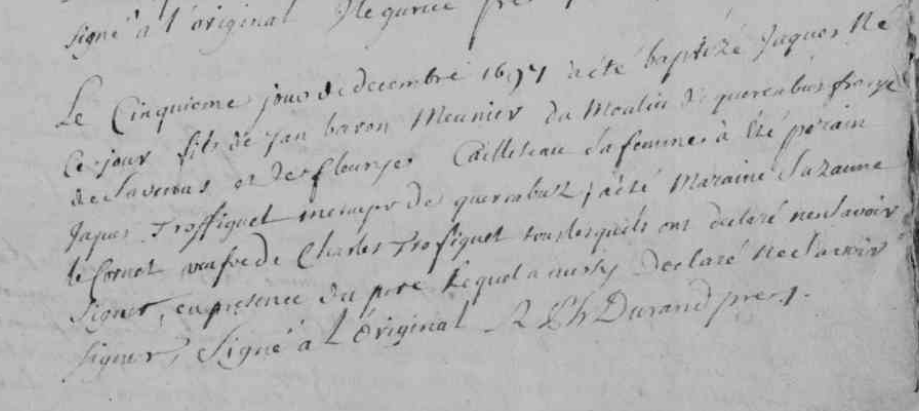 signé à l'original
Le Cinquiéme jour de decembre 1697 a été baptizé Jaques Né
Ce jour fils de Jan baron Meunier du Moulin de querabus
de et de fleurye Cailleteau sa femme à été parain
Jaques Troffiguet de querabus, a été Maraine Suzanne
le Cornet veufve de Charles Trofiguet tous lesquels ont declaré ne sçavoir
signer, en presence du pere lequel a aussy declaré ne sçavoir
signer, Signé à l'Original R Ph Durand